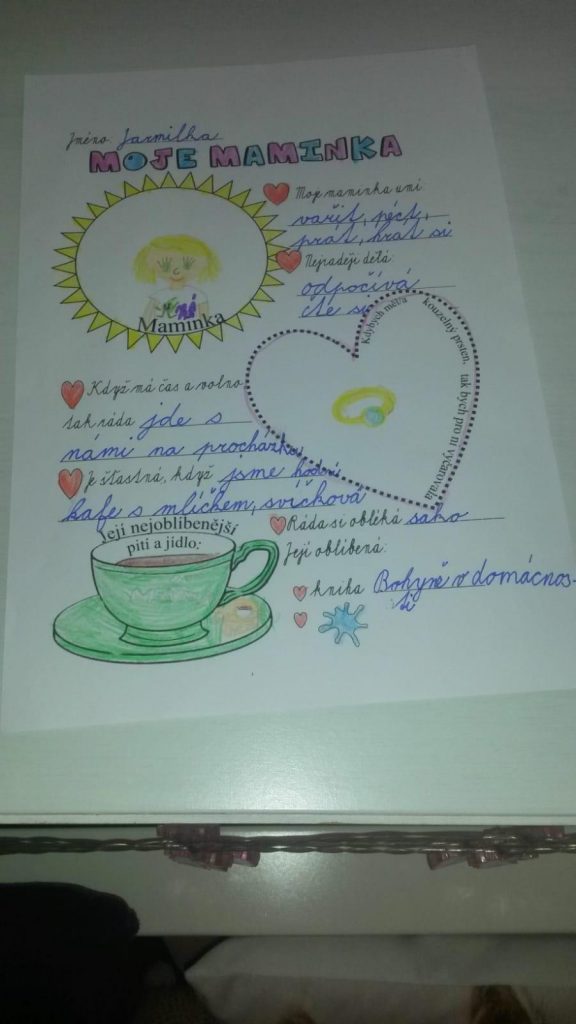 Jméno: Jarmilka
MOJE MAMINKA
Moje maminka umí:
vařit, péct,
prát, hrát si
Nejraději dělá:
odpočívá
čte si
Maminka
Kdybych měl/a kouzelný prsten, tak bych pro ni vyčaroval/a
Když má čas a volno
tak ráda jde s
námi na procházku
Je šťastná, když jsme hodní
kafe s mlíčkem, svíčková
Její nejoblíbenější
pití a jídlo:
Ráda si obléká sako
Její oblíbená:
kniha Bohyně v domácnos-
ti